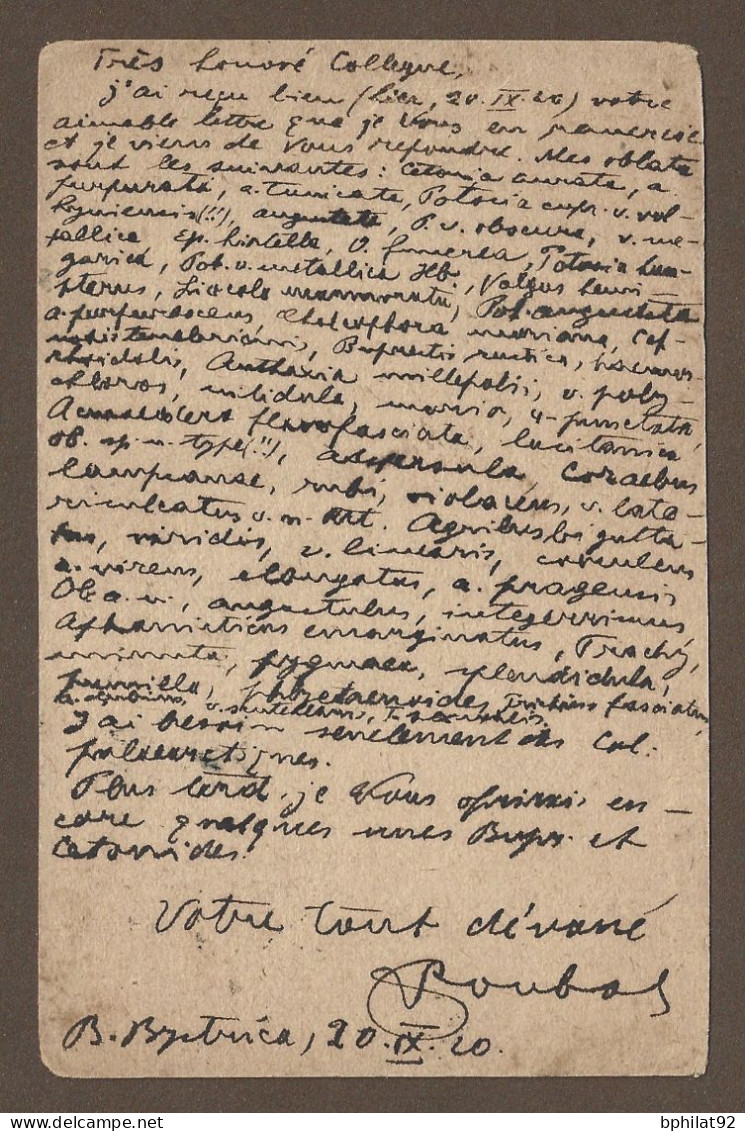 Très honoré Collegue,
j'ai reçu bien (hier, 20. IX. 20) votre
aimable lettre que je Vous en remercie
et je viens de Vous repondre. Mes oblata
sont les suivantes: Cetonia aurata, a.
purpurata, a. tunicata, Potosia cupr. v. vol-
hyniensis (!!), angustata, P. v. obscura, v. me-
tallica, Ep. hirtella, O. funerea, Potosia hun-
garica, Pot. v. metallica Hb., Valgus hemi-
pterus, Liocola marmorata, Pot. angustata
a. purpurascens Chalcophora mariana, Cap-
nodis tenebrionis, Buprestis rustica,
Anthaxia millefolii, v. poly-
chloros, nitidula, morio, 4-punctata,
Acmaeodera flavofasciata, lusitanica
ab. sp. n. type (!!), adspersula, Coraebus
lampsanae, rubi, violaceus, v.
v. n. Agrilus bigutta-
tus, viridis, v. linearis, coeruleus
a. virens, elongatus, a. pragensis
Ob. a. n., angustulus, integerrimus
Aphanisticus emarginatus, Trachys
minuta, pygmaea, splendidula,
pumilla, Trichius fasciatus,
v. scutellaris, T. sexualis.
J'ai besoin seulement des Col.
palaearctiques.
Plus tard, je Vous offrirai en-
core quelques unes Bupr. et
Cetonides.
Votre tout dévoué
Roubal
B. Bystrica, 20. IX. 20.
bphilat92